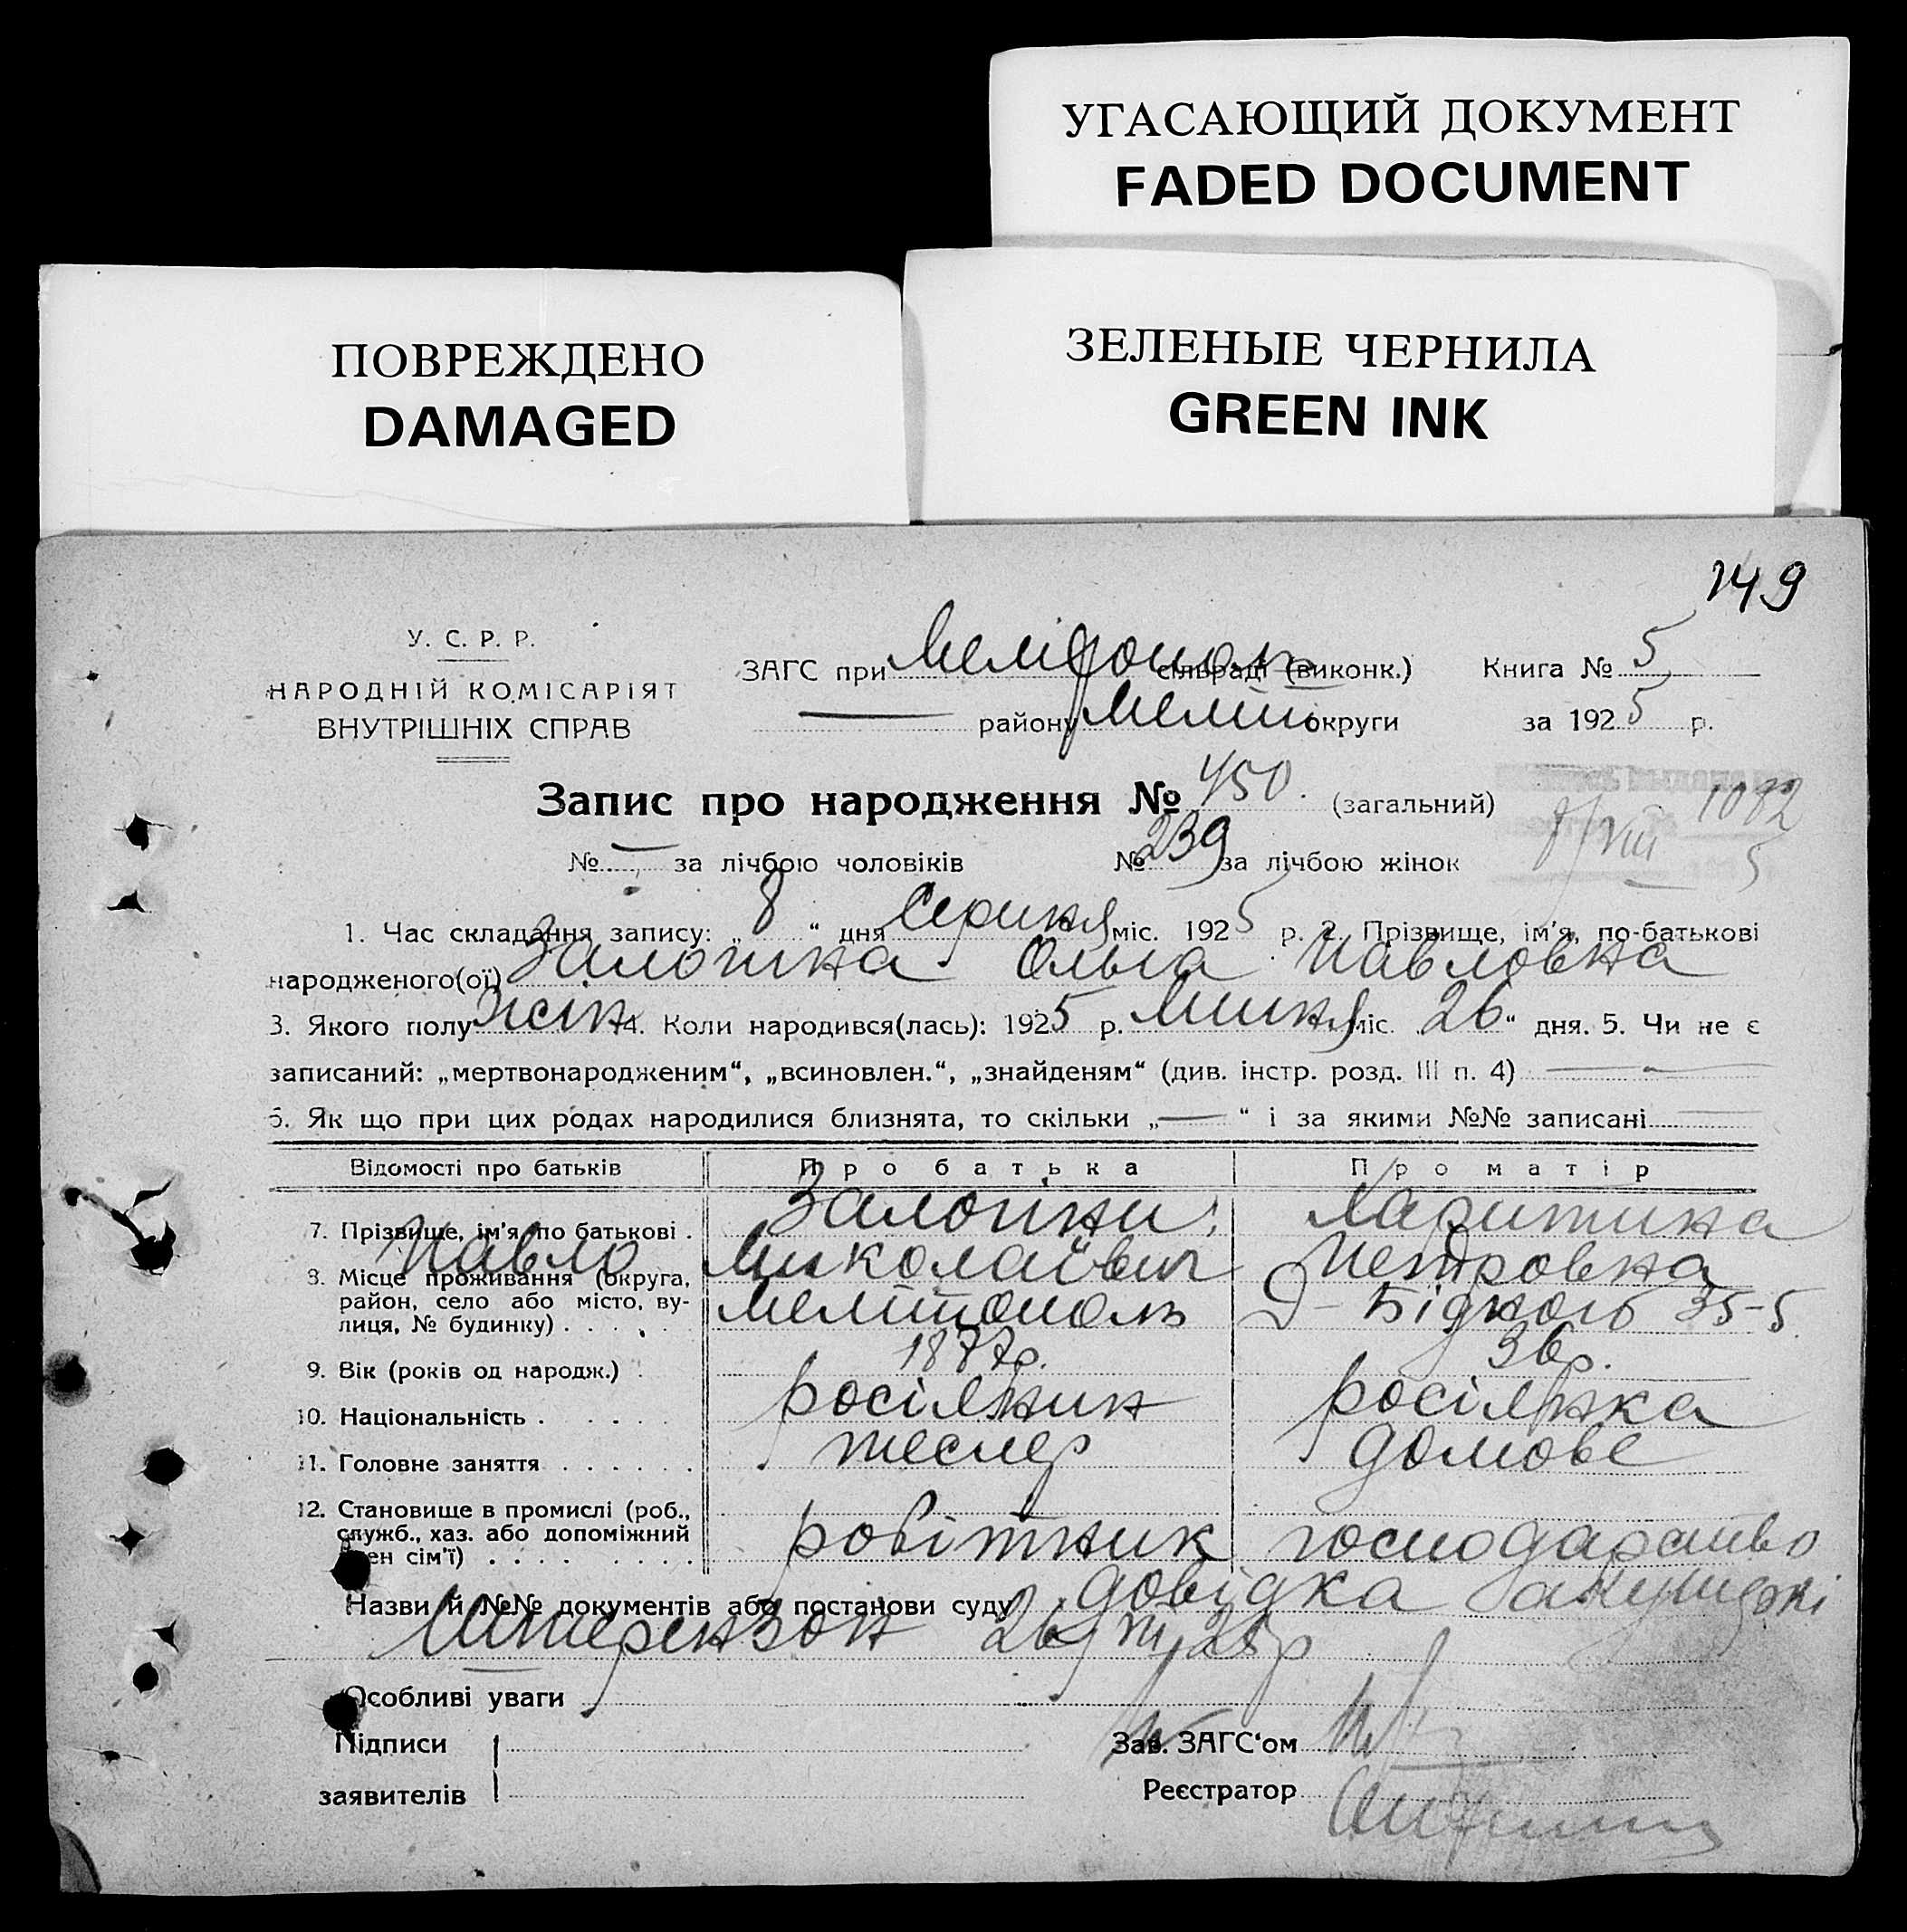 УГАСАЮЩИЙ ДОКУМЕНТ
FADED DOCUMENT
ПОВРЕЖДЕНО
DAMAGED
ЗЕЛЕНЫЕ ЧЕРНИЛА
GREEN INK
149
У. С. Р. Р.
НАРОДНІЙ КОМІСАРІЯТ
ВНУТРІШНІХ СПРАВ
ЗАГС при Мелітопол сільраді (виконк.) Книга № 5
— району Меліт округи за 1925 р.
Запис про народження № 450. (загальний)
1082
№ — за лічбою чоловіків № 239 за лічбою жінок
8/VIII 5
1. Час складання запису: „ 8 “ дня Серпня міс. 1925 р. 2. Прізвище, ім'я, по-батькові
народженого(ої) Залопина Ольга Павловна
3. Якого полу жін 4. Коли народився(лась): 1925 р. Липня міс. 26 “ дня. 5. Чи не є
записаний: „мертвонародженим“, „всиновлен.“, „знайденям“ (див. інстр. розд. III п. 4) —
6. Як що при цих родах народилися близнята, то скільки „ — “ і за якими №№ записані
Відомості про батьків Про батька Про матір
7. Прізвище, ім'я, по батькові . Залопин Харитина
Павло Миколаївич Петровна
8. Місце проживання (округа,
район, село або місто, ву-
лиця, № будинку) . . . . . Мелітополь Д-Бідного 35-5
9. Вік (років од народж.) . 1877р. 36р.
10. Національність . . . . . росіянин росіянка
11. Головне заняття . . . . . . тесляр домове
12. Становище в промислі (роб.,
служб., хаз. або допоміжний
член сім'ї) . . . . . . . . робітник господарство
Назви й №№ документів або постанови суду довідка акушеркі
Штерензон 26/VII 25р
Особливі уваги
Підписи
заявителів
Зав. ЗАГС'ом
Реєстратор